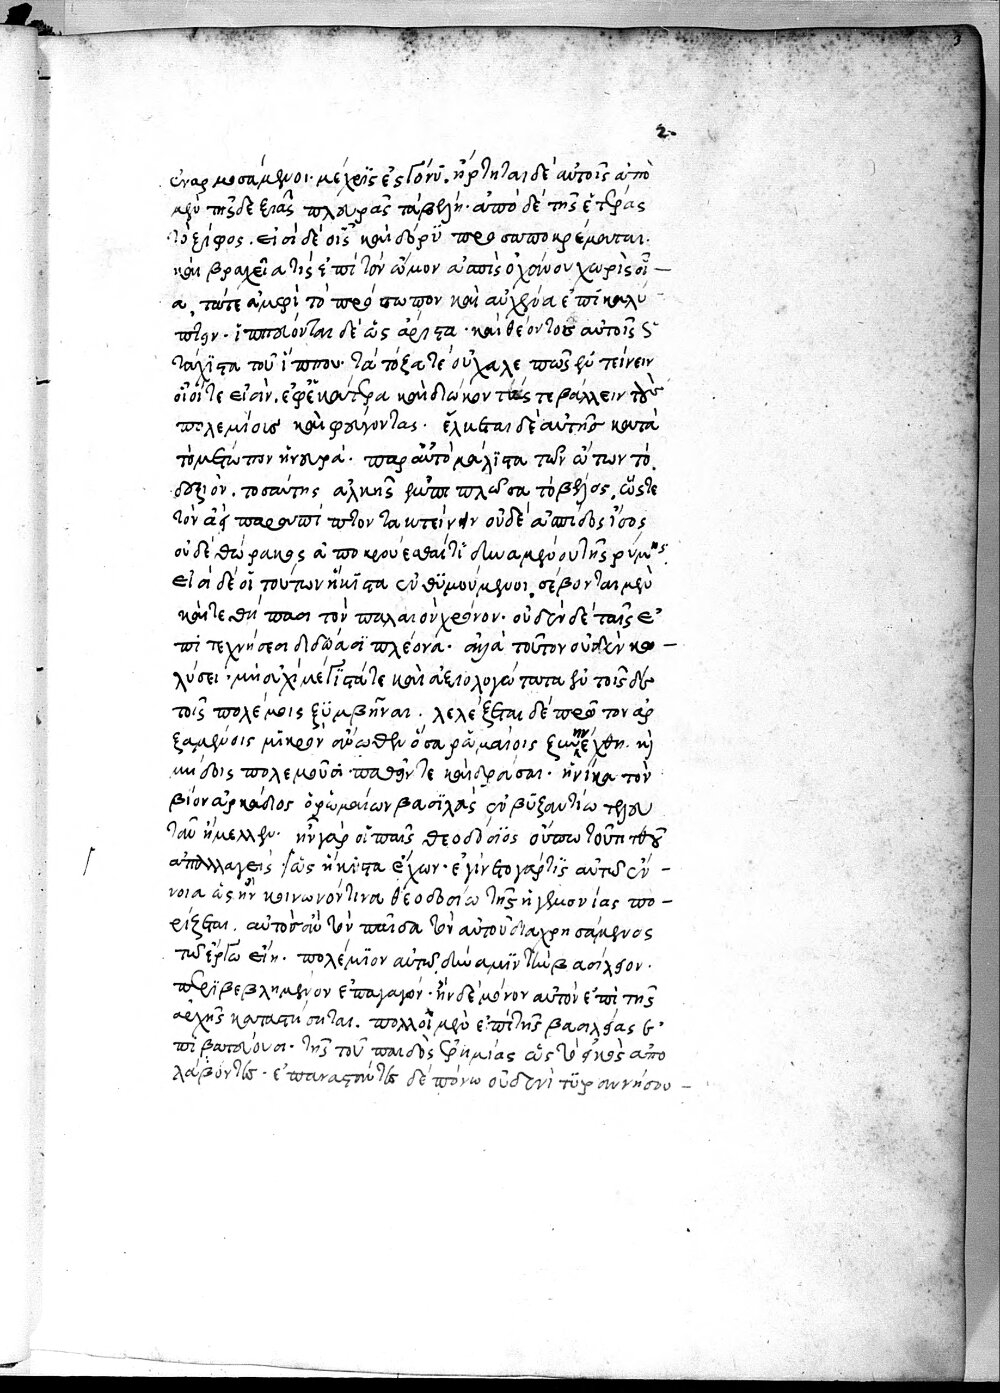 2
ἐναρμοσάμενοι μέχρις ἐς γόνυ. ἤρτηται δὲ αὐτοῖς ἀπὸ
μὲν τῆς δεξιᾶς πλευρᾶς τὰ βέλη. ἀπὸ δὲ τῆς ἑτέρας
τὸ ξίφος. εἰσὶ δὲ οἷς καὶ δόρυ προσαποκρέμαται.
καὶ βραχεῖά τις ἐπὶ τῶν ὤμων ἀσπὶς ὀχάνου χωρὶς οἵ—
α, τά τε ἀμφὶ τὸ πρόσωπον καὶ αὐχένα ἐπικαλύ
πτειν. ἱππεύονται δὲ ὡς ἄριστα. καὶ θέοντος αὐτοῖς ὡς
τάχιστα τοῦ ἵππου. τὰ τόξα τε οὐ χαλεπῶς ἐντείνειν
οἷοί τέ εἰσιν. ἐφ' ἑκάτερα καὶ διώκοντάς τε βάλλειν τοὺς
πολεμίους καὶ φεύγοντας. ἕλκεται δὲ αὐτῆς κατὰ
τὸ μέτωπον ἡ νευρά. παρ' αὐτὸ μάλιστα τῶν ὤτων τὸ
δεξιὸν. τοσαύτης ἀλκῆς ἐμπιπλῶσα τὸ βέλος, ὥστε
τὸν ἀεὶ παραπίπτοντα κτείνειν οὐδὲ ἀσπίδος ἴσως
οὐδὲ θώρακος ἀποκρούεσθαί τι δυναμένου τῆς ῥύμης
εἰσὶ δὲ οἳ τούτων ἥκιστα ἐνθυμούμενοι. σέβονται μὲν
καὶ τεθήπασι τὸν παλαιὸν χρόνον. οὐδὲν δὲ ταῖς ἐ
πιτεχνήσεσι διδόασι πλέον. ἀλλὰ τούτων οὐδὲν κω—
λύσει. μὴ οὐχὶ μέγιστά τε καὶ ἀξιολογώτατα ἐν τοῖσδε
τοῖς πολέμοις ξυμβῆναι. λελέξεται δὲ πρῶτον ἀρ
ξαμένοις μικρὸν ἄνωθεν ὅσα ῥωμαίοις ξυνηνέχθη. καὶ
μήδοις πολεμοῦσι παθεῖν τε καὶ δρᾶσαι. ἡνίκα τὸν
βίον ἀρκάδιος ὁ ῥωμαίων βασιλεὺς ἐν βυζαντίω τελευ
τᾶν ἤμελλεν. ἦν γάρ οἱ παῖς θεοδόσιος οὔπω τοῦ τιτθοῦ
ἀπαλλαγεὶς ὡς ἥκιστα ἔχων. ἐγίνετο γάρ τις αὐτῶ ἔν—
νοια ὡς ἢν κοινωνόν τινα θεοδοσίω τῆς ἡγεμονίας πο—
ρίζεται. αὐτὸς ἂν τὸν παῖδα τὸν αὐτοῦ διαχρησάμενος
τῶ ἔργω εἴη. πολέμιον αὐτῶ δύναμιν τὴν βασίλειον.
περιβεβλημένον ἐπαγαγών. ἢν δὲ μόνον αὐτὸν ἐπὶ τῆς
ἀρχῆς καταστήσηται. πολλοὶ μὲν ἐπὶ τῆς βασιλείας ἐ
πιβατεύουσι. τῆς τοῦ παιδὸς ἐρημίας ὡς τὸ εἰκὸς ἀπο
λαβόντες. ἐπαναστάντες δὲ πόνω οὐδενὶ τυραννήσου—